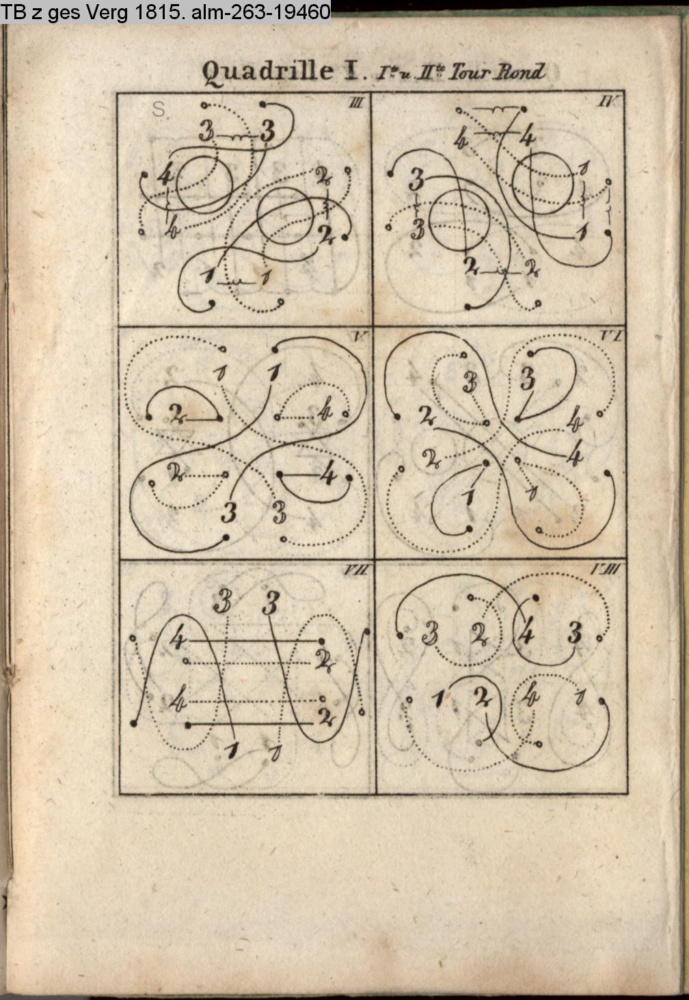 TB z ges Verg 1815. alm-263-19460
Quadrille I. I.te u II.te Tour Rond
S.
III
3 3
4 2
4 2
1 1
IV
4 4
3 1
3 1
2 2
V
1 1
2 4
2 4
3 3
VI
3 3
2 4
2 4
1 1
VII
3 3
4 2
4 2
1 1
VIII
3 2 4 3
1 2 4 1